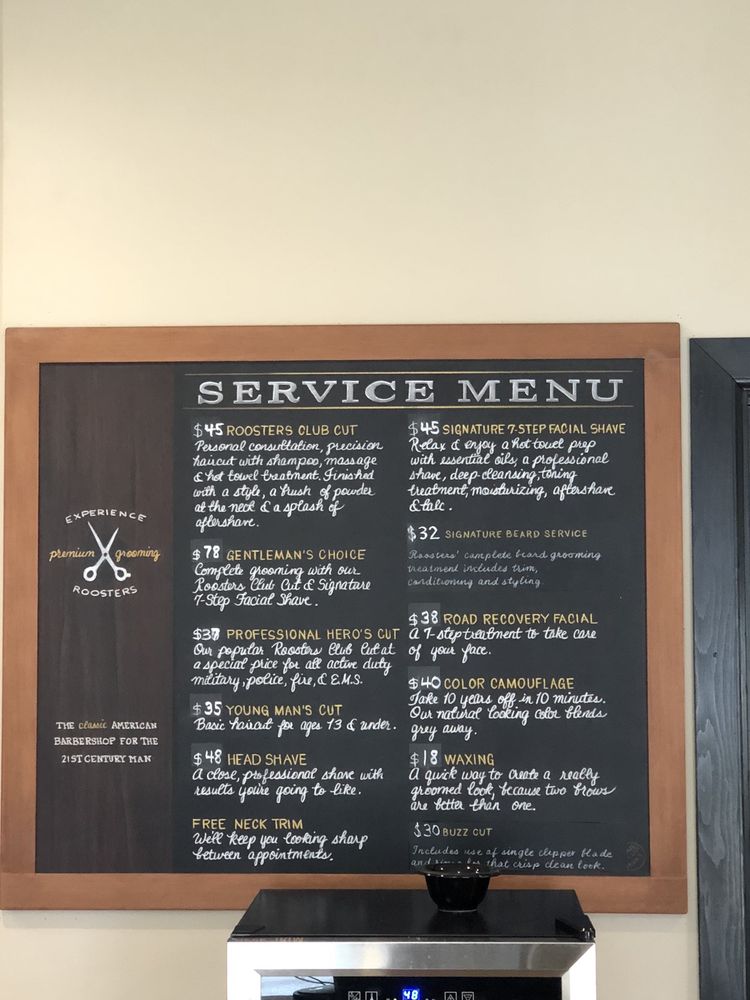 SERVICE MENU
EXPERIENCE
premium grooming
ROOSTERS
THE classic AMERICAN
BARBERSHOP FOR THE
21ST CENTURY MAN
$45 ROOSTERS CLUB CUT
Personal consultation, precision
haircut with shampoo, massage
& hot towel treatment. Finished
with a style, a brush of powder
at the neck & a splash of
aftershave.
$78 GENTLEMAN'S CHOICE
Complete grooming with our
Roosters Club Cut & Signature
7-Step Facial Shave.
$37 PROFESSIONAL HERO'S CUT
Our popular Roosters Club Cut at
a special price for all active duty
military, police, fire, & E.M.S.
$35 YOUNG MAN'S CUT
Basic haircut for ages 13 & under.
$48 HEAD SHAVE
A close, professional shave with
results you're going to like.
FREE NECK TRIM
We'll keep you looking sharp
between appointments.
$45 SIGNATURE 7-STEP FACIAL SHAVE
Relax & enjoy a hot towel prep
with essential oils, a professional
shave, deep cleansing, toning
treatment, moisturizing, aftershave
& talc.
$32 SIGNATURE BEARD SERVICE
Roosters' complete beard grooming
treatment includes trim,
conditioning and styling.
$38 ROAD RECOVERY FACIAL
A 7-step treatment to take care
of your face.
$40 COLOR CAMOUFLAGE
Take 10 years off in 10 minutes.
Our natural looking color blends
grey away.
$18 WAXING
A quick way to create a really
groomed look, because two brows
are better than one.
$30 BUZZ CUT
Includes use of single clipper blade
and for that crisp clean look.
48